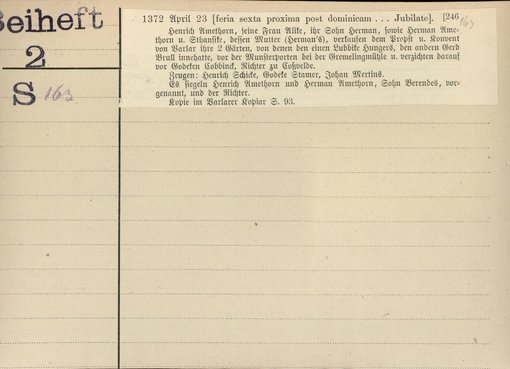 Beiheft
2
S 163
1372 April 23 [feria sexta proxima post dominicam . . . Jubilate]. [246
163
Henrich Amethorn, seine Frau Alike, ihr Sohn Herman, sowie Herman Ame-
thorn u. Sthansike, dessen Mutter (Herman's), verkaufen dem Propst u. Konvent
von Varlar ihre 2 Gärten, von denen den einen Lubbike Hungers, den andern Gerd
Brull innehatte, vor der Munsterporten bei der Gremelingmühle u. verzichten darauf
vor Godeken Cobbinck, Richter zu Coßvelde.
Zeugen: Henrich Schicke, Godeke Stamer, Johan Mertins.
Es siegeln Henrich Amethorn und Herman Amethorn, Sohn Berendes, vor-
genannt, und der Richter.
Kopie im Varlarer Kopiar S. 93.